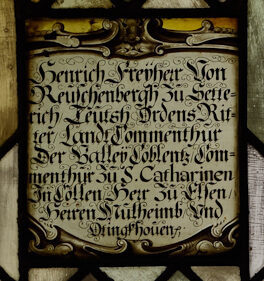 Henrich Freÿherr Von
Reuschenbergh Zu Sette-
rich Teutsh Ordens Rit-
ter Landt Commenthur
Der Balleÿ Coblentz Com-
menthur Zu S. Catharinen
In Cöllen Herr Zu Elsen /
Herren Mülheimb, Vnd
Dringkhouen